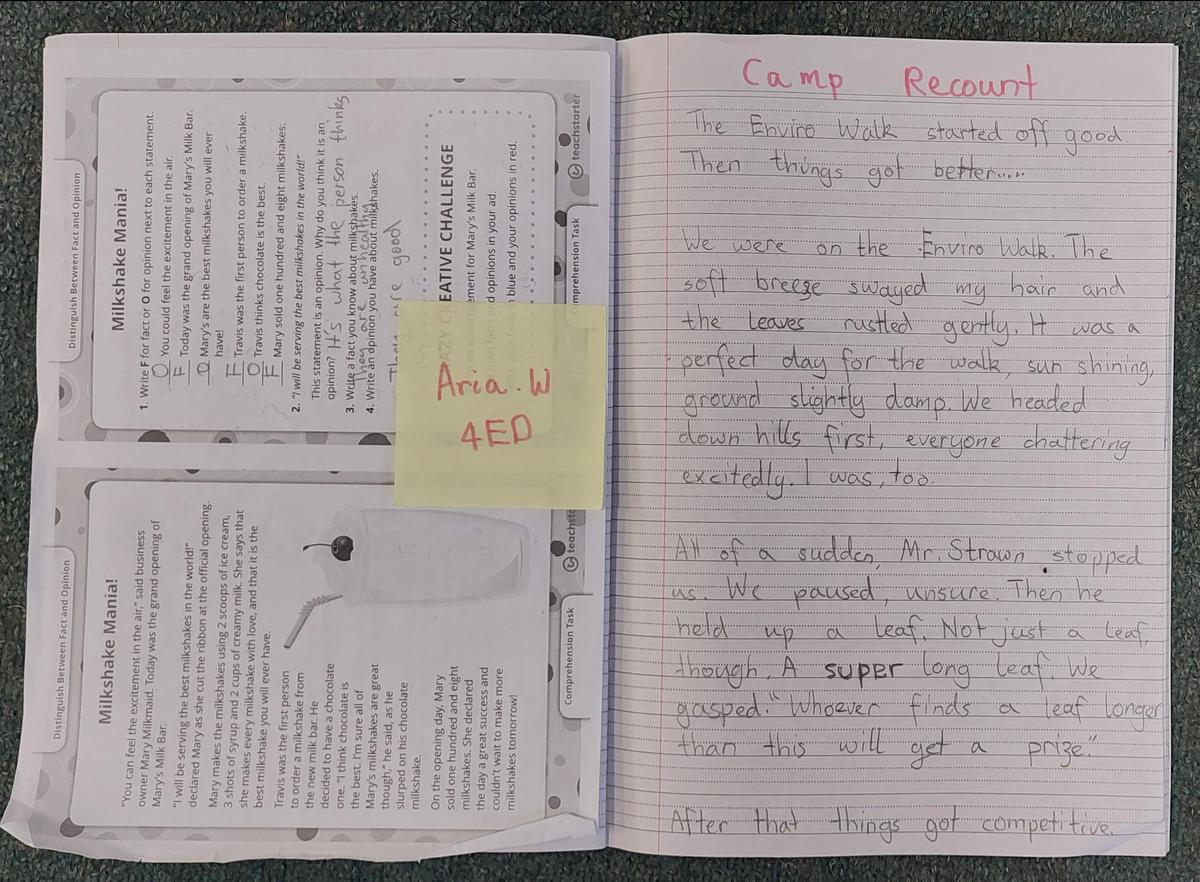 Distinguish Between Fact and Opinion
Milkshake Mania!
"You can feel the excitement in the air," said business
owner Mary Milkmaid. Today was the grand opening of
Mary's Milk Bar.
"I will be serving the best milkshakes in the world!"
declared Mary as she cut the ribbon at the official opening.
Mary makes the milkshakes using 2 scoops of ice cream,
3 shots of syrup and 2 cups of creamy milk. She says that
she makes every milkshake with love, and that it is the
best milkshake you will ever have.
Travis was the first person
to order a milkshake from
the new milk bar. He
decided to have a chocolate
one. "I think chocolate is
the best. I'm sure all of
Mary's milkshakes are great
though," he said, as he
slurped on his chocolate
milkshake.
On the opening day, Mary
sold one hundred and eight
milkshakes. She declared
the day a great success and
couldn't wait to make more
milkshakes tomorrow!
Comprehension Task
Distinguish Between Fact and Opinion
Milkshake Mania!
1. Write F for fact or O for opinion next to each statement.
O You could feel the excitement in the air.
F Today was the grand opening of Mary's Milk Bar.
O Mary's are the best milkshakes you will ever
have!
F Travis was the first person to order a milkshake.
O Travis thinks chocolate is the best.
F Mary sold one hundred and eight milkshakes.
2. "I will be serving the best milkshakes in the world!"
This statement is an opinion. Why do you think it is an
opinion? It's what the person thinks
3. Write a fact you know about milkshakes.
They are unhealthy
4. Write an opinion you have about milkshakes.
They are good
CREATIVE CHALLENGE
for Mary's Milk Bar.
opinions in your ad.
blue and your opinions in red.
Comprehension Task
teachstarter
Aria.W
4ED
Camp Recount
The Enviro Walk started off good.
Then things got better.....
We were on the Enviro Walk. The
soft breeze swayed my hair and
the leaves rustled gently. It was a
perfect day for the walk, sun shining,
ground slightly damp. We headed
down hills first, everyone chattering
excitedly. I was, too.
All of a sudden, Mr. Strawn stopped
us. We paused, unsure. Then he
held up a leaf. Not just a leaf,
though. A super long leaf. We
gasped. "Whoever finds a leaf longer
than this will get a prize."
After that things got competitive.